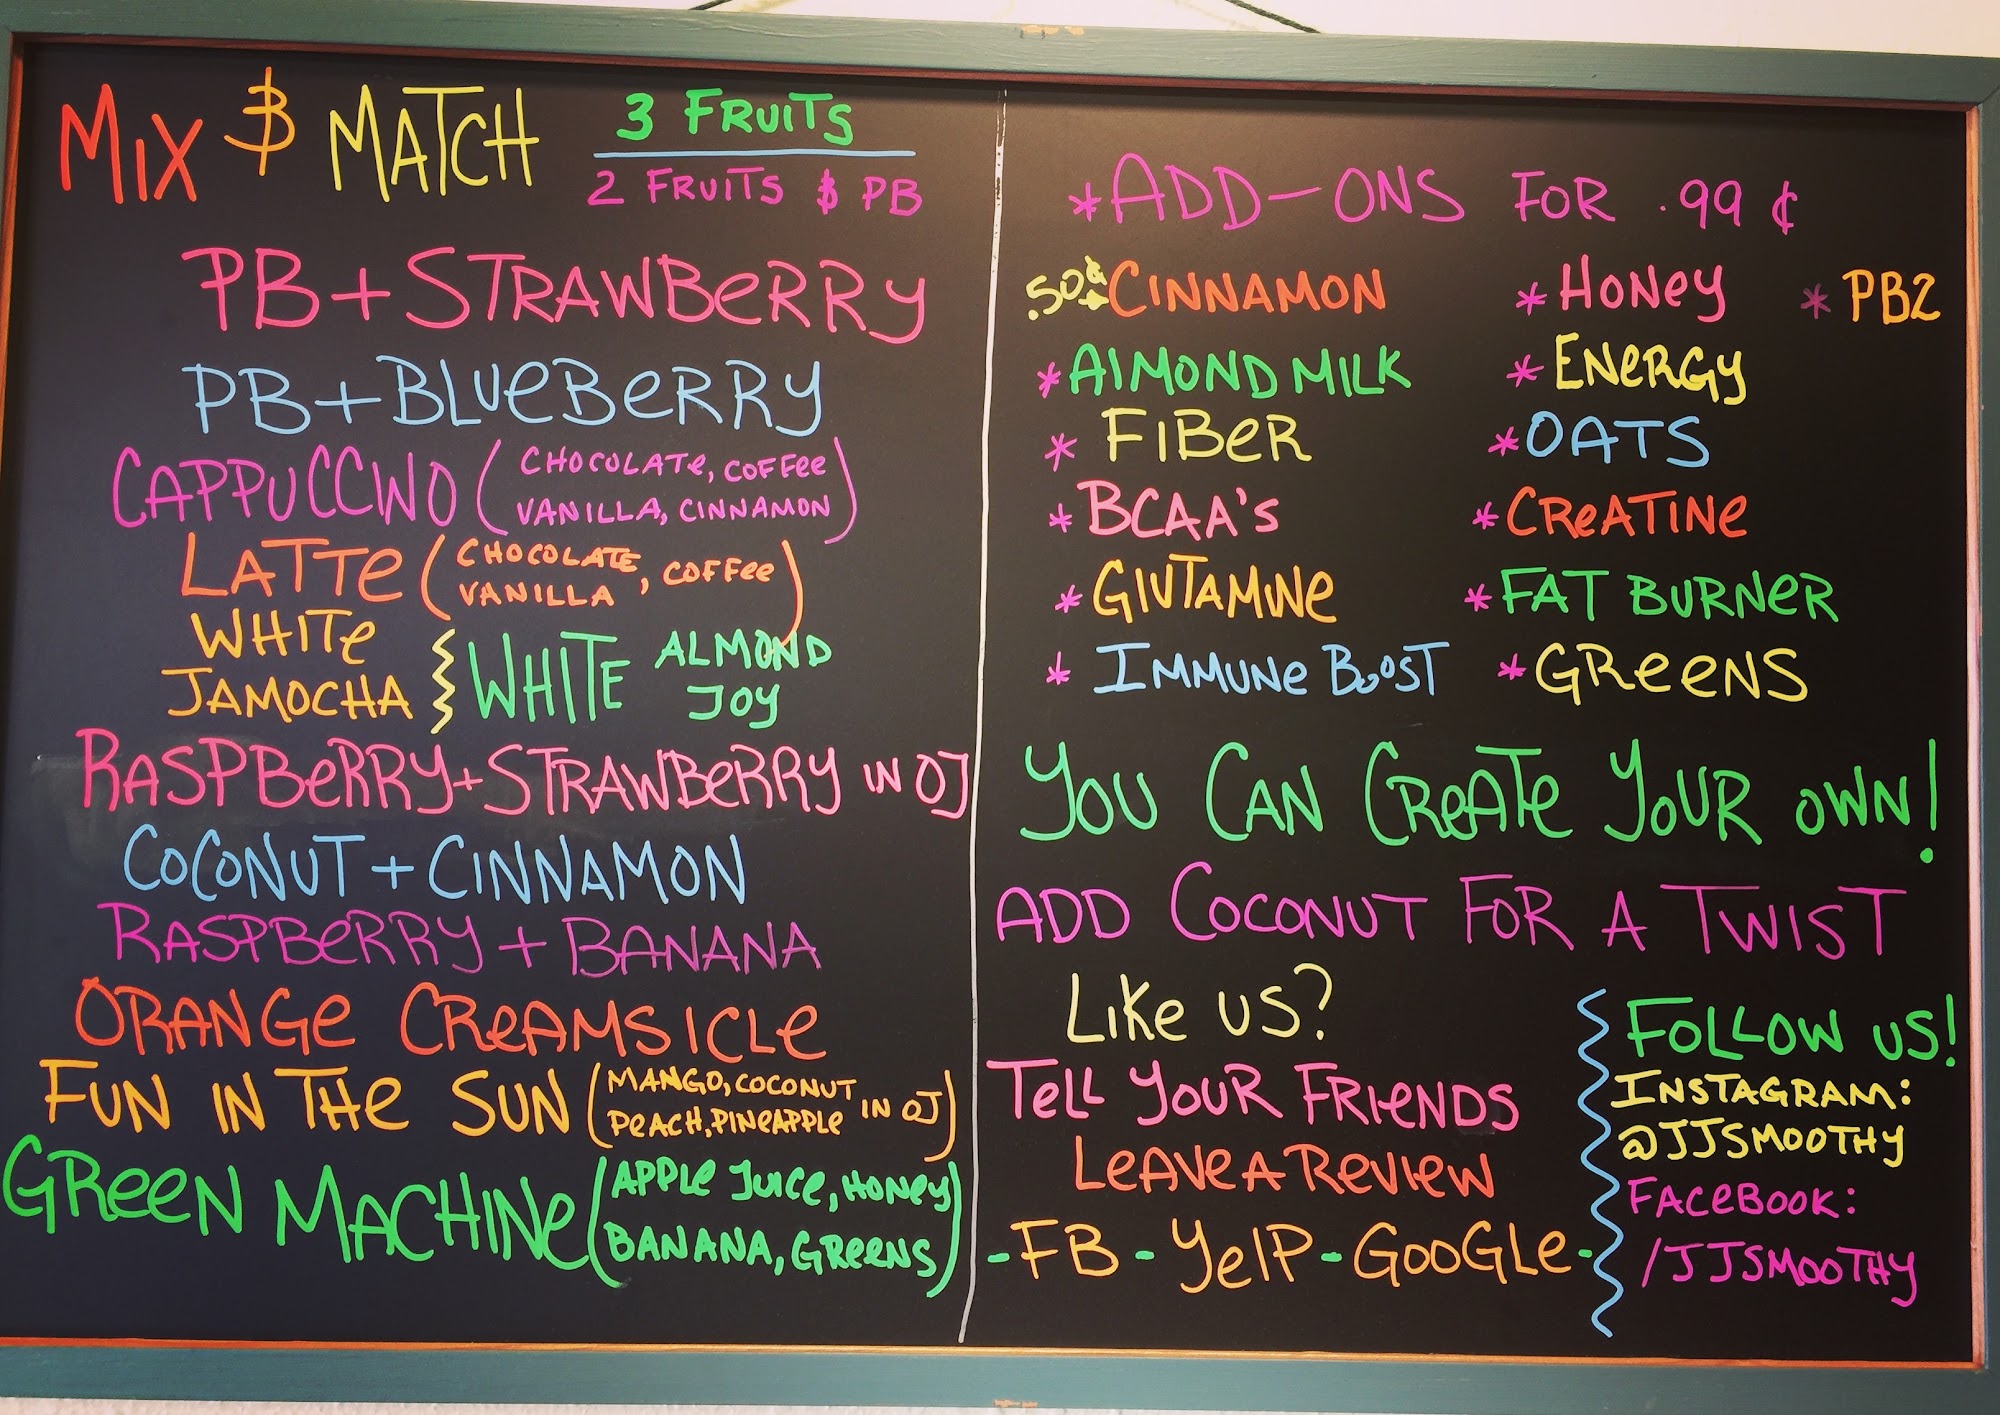 MIX & MATCH 3 FRUITS
2 FRUITS & PB
PB + STRAWBERRY
PB + BLUEBERRY
CAPPUCCINO (CHOCOLATE, COFFEE
VANILLA, CINNAMON)
LATTE (CHOCOLATE, COFFEE
VANILLA)
WHITE
JAMOCHA
WHITE ALMOND
JOY
RASPBERRY + STRAWBERRY IN OJ
COCONUT + CINNAMON
RASPBERRY + BANANA
ORANGE CREAMSICLE
FUN IN THE SUN (MANGO, COCONUT
PEACH, PINEAPPLE IN OJ)
GREEN MACHINE (APPLE JUICE, HONEY
BANANA, GREENS)
*ADD-ONS FOR .99 ¢
.50¢ CINNAMON * HONEY * PB2
* ALMOND MILK * ENERGY
* FIBER * OATS
* BCAA's * CREATINE
* GLUTAMINE * FAT BURNER
* IMMUNE BOOST * GREENS
YOU CAN CREATE YOUR OWN!
ADD COCONUT FOR A TWIST
LIKE US?
TELL YOUR FRIENDS
LEAVE A REVIEW
- FB - YELP - GOOGLE -
FOLLOW US!
INSTAGRAM:
@JJSMOOTHY
FACEBOOK:
/JJSMOOTHY